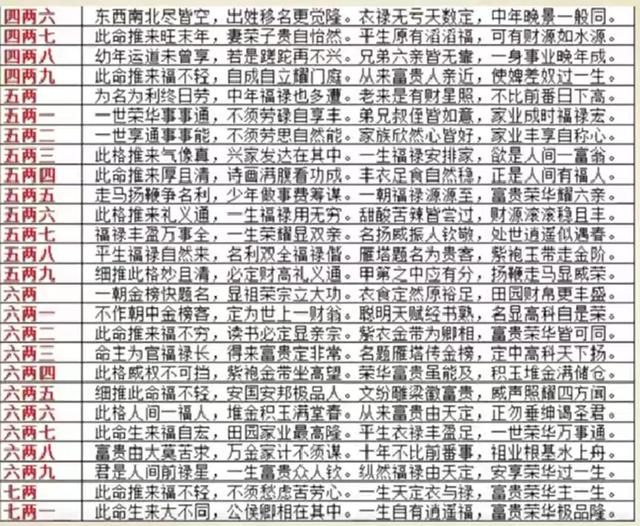 四两六 东西南北尽皆空，出姓移名更觉隆。衣禄无亏天数定，中年晚景一般同。
四两七 此命推来旺末年，妻荣子贵自怡然。平生原有滔滔福，可有财源如水源。
四两八 幼年运道未曾享，若是蹉跎再不兴。兄弟六亲皆无靠，一身事业晚年成。
四两九 此命推来福不轻，自成自立耀门庭。从来富贵人亲近，使婢差奴过一生。
五两 为名为利终日劳，中年福禄也多遭。老来是有财星照，不比前番日下高。
五两一 一世荣华事事通，不须劳碌自享丰。弟兄叔侄皆如意，家业成时福禄宏。
五两二 一世享通事事能，不须劳思自然能。家族欣然心皆好，家业丰享自称心。
五两三 此格推来气像真，兴家发达在其中。一生福禄安排家，欲是人间一富翁。
五两四 此命推来厚且清，诗画满腹看功成。丰衣足食自然稳，正是人间有福人。
五两五 走马扬鞭争名利，少年做事费筹谋。一朝福禄源源至，富贵荣华耀六亲。
五两六 此格推来礼义通，一生福禄用无穷。甜酸苦辣皆尝过，财源滚滚稳且丰。
五两七 福禄丰盈万事全，一生荣耀显双亲。名扬威振人钦敬，处世逍遥似遇春。
五两八 平生福禄自然来，名利双全福禄偕。雁塔题名为贵客，紫袍玉带走金阶。
五两九 细推此格妙且清，必定财高礼义通。甲第之中应有分，扬鞭走马显威荣。
六两 一朝金榜快题名，显祖荣宗立大功。衣食定然原裕足，田园财帛更丰盛。
六两一 不作朝中金榜客，定为世上一财翁。聪明天赋经书熟，名显高科自是荣。
六两二 此命推来福不穷，读书必定显亲宗。紫衣金带为卿相，富贵荣华皆可同。
六两三 命主为官福禄长，得来富贵定非常。名题雁塔传金榜，定中高科天下扬。
六两四 此格威权不可挡，紫袍金带坐高望。荣华富贵虽能及，积玉堆金满储仓。
六两五 细推此命福不轻，安国安邦极品人。文纷雕梁徽富贵，威声照耀四方闻。
六两六 此格人间一福人，堆金积玉满堂春。从来富贵由天定，正勿垂绅谒圣君。
六两七 此命生来福自宏，田园家业最高隆。平生衣禄丰盈足，一世荣华万事通。
六两八 富贵由大莫苦求，万金家计不须谋。十年不比前番事，祖业根基水上舟。
六两九 君是人间前禄星，一生富贵众人钦。纵然福禄由天定，安享荣华过一生。
七两 此命推来福不轻，不须愁虑苦劳心。一生天定衣与禄，富贵荣华主一生。
七两一 此命生来大不同，公侯卿相在其中。一生自有逍遥福，富贵荣华极品隆。